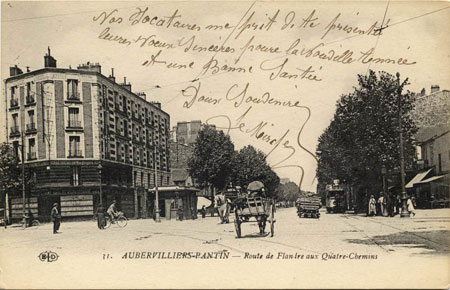 Nos Locataires me prit de te présenter
leures Voeux Sinceres pour la Nouvelle Année
et une Bonne Santée
Doux Souvenire
31. AUBERVILLIERS-PANTIN — Route de Flandre aux Quatre-Chemins